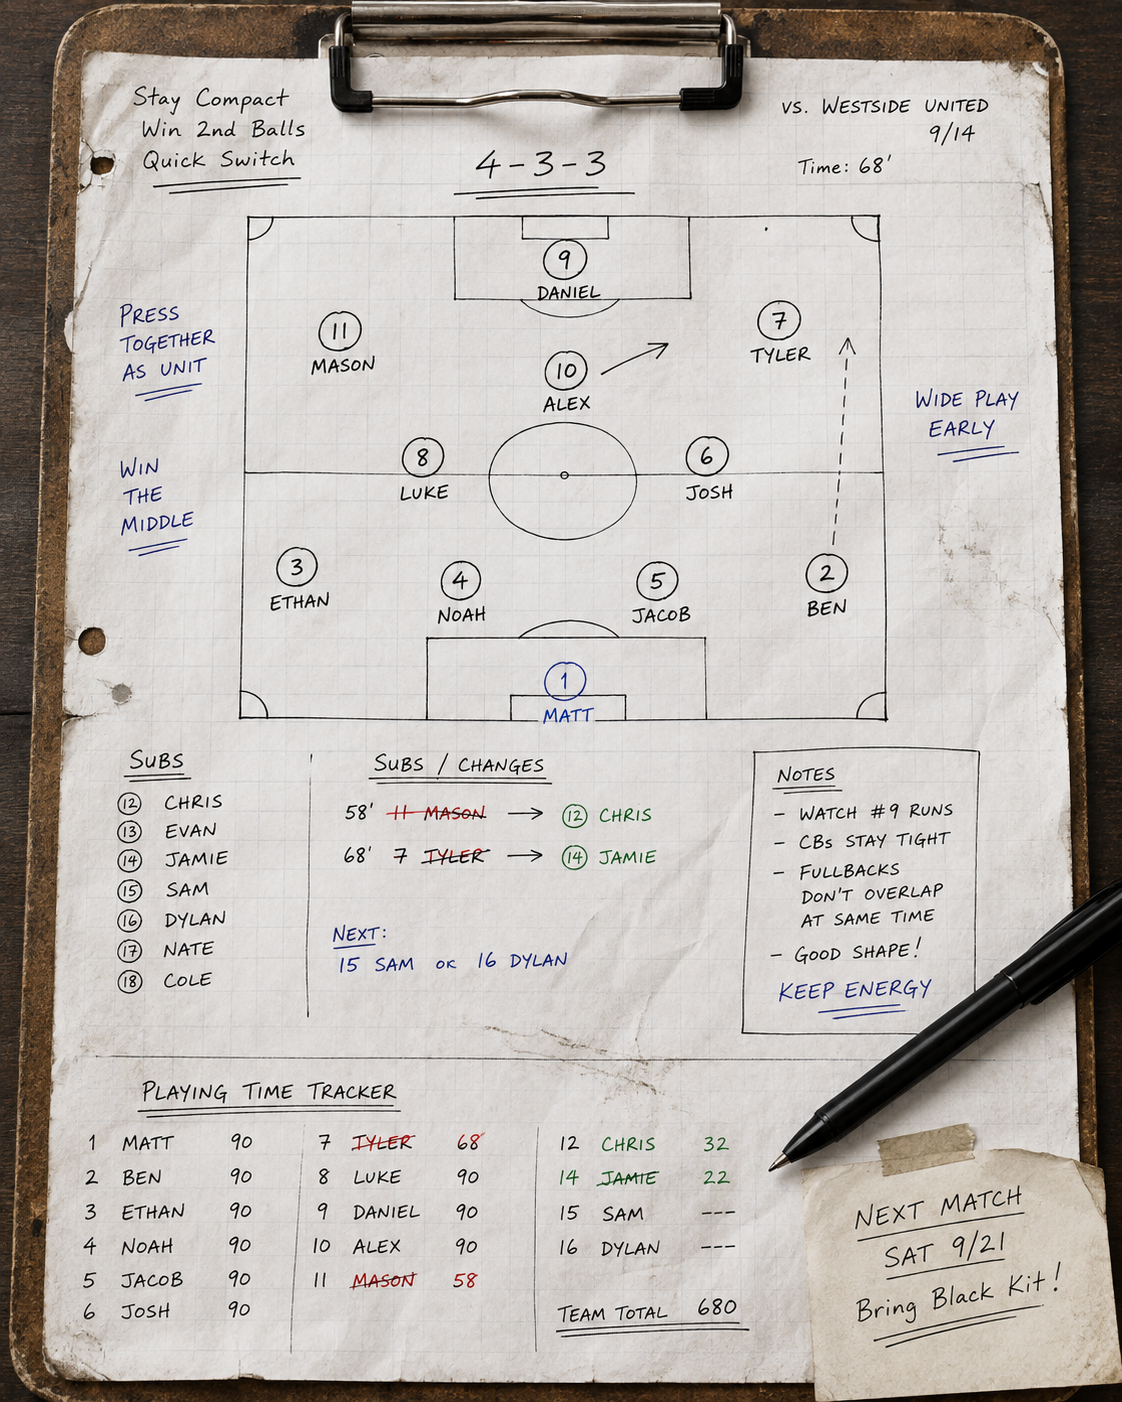 Stay Compact
Win 2nd Balls
Quick Switch
4-3-3
VS. WESTSIDE UNITED
9/14
Time: 68'
PRESS
TOGETHER
AS UNIT
WIN
THE
MIDDLE
WIDE PLAY
EARLY
9
DANIEL
11
MASON
7
TYLER
10
ALEX
8
LUKE
6
JOSH
3
ETHAN
4
NOAH
5
JACOB
2
BEN
1
MATT
SUBS
12 CHRIS
13 EVAN
14 JAMIE
15 SAM
16 DYLAN
17 NATE
18 COLE
SUBS / CHANGES
58' 11 MASON → 12 CHRIS
68' 7 TYLER → 14 JAMIE
NEXT:
15 SAM OR 16 DYLAN
NOTES
- WATCH #9 RUNS
- CBs STAY TIGHT
- FULLBACKS
DON'T OVERLAP
AT SAME TIME
- GOOD SHAPE!
KEEP ENERGY
PLAYING TIME TRACKER
1 MATT 90
2 BEN 90
3 ETHAN 90
4 NOAH 90
5 JACOB 90
6 JOSH 90
7 TYLER 68
8 LUKE 90
9 DANIEL 90
10 ALEX 90
11 MASON 58
12 CHRIS 32
14 JAMIE 22
15 SAM ---
16 DYLAN ---
TEAM TOTAL 680
NEXT MATCH
SAT 9/21
Bring Black Kit!